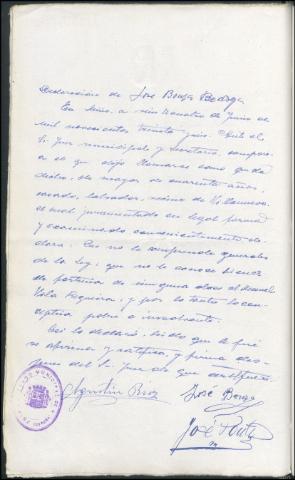 Declaración de José Borja Pedroja
En Miño, a veinticuatro de Junio de
mil novecientos treinta y seis. Ante el
Sr. Juez municipal y secretario, compare-
ce el que dijo llamarse como queda
dicho, de mayor de cuarenta años,
casado, labrador, vecino de Villanueva
el cual juramentado en legal forma
y examinado convenientemente de-
clara: Que no le comprende generales
de la Ley; que no le conoce bienes
de fortuna de ninguna clase al
y por lo tanto lo con-
ceptúa pobre e insolvente.
Así lo declaró, leído que le fué
se afirma y ratifica, y firma des-
pues del Sr. Juez de que certifico.
Agustín José Borja
José